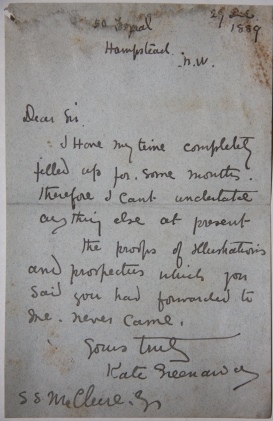 50 Frognal
29 Oct
1889
Hampstead
N.W.
Dear Sir.
I Have my time completely
filled up for. some months.
Therefore I Cant undertake
anything else at present
The proofs of Illustrations
and prospectus which you
said you had forwarded to
me. never came.
Yours truly
Kate Greenaway
S S McClure. Esq